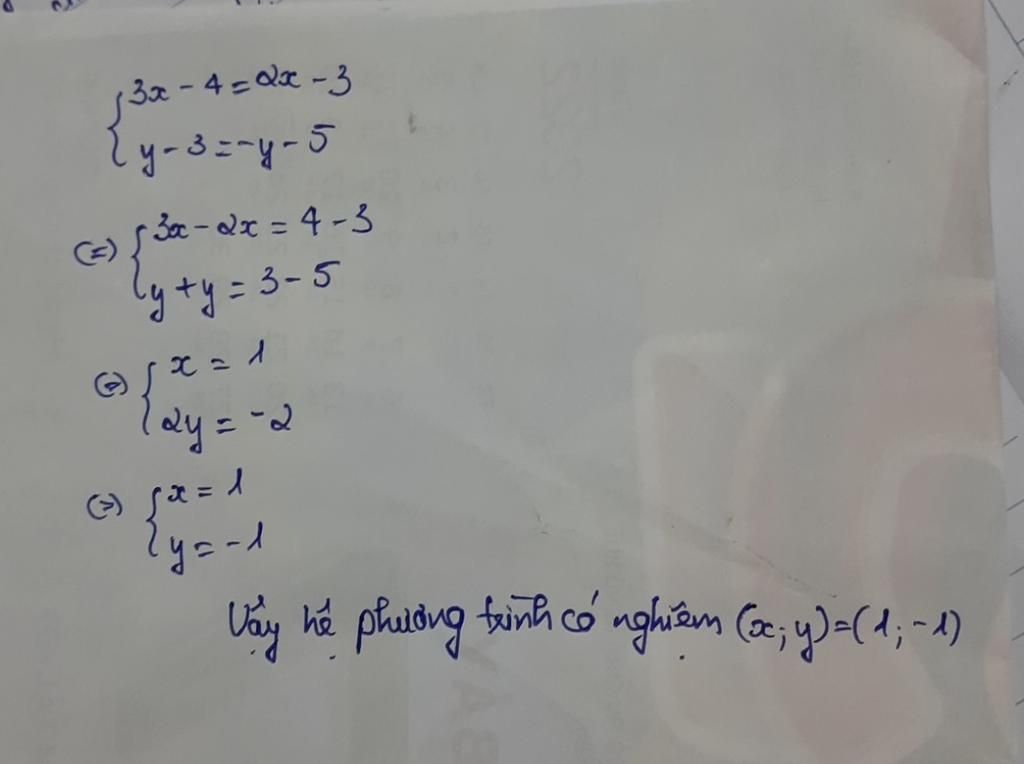 {3x - 4 = 2x - 3
{y - 3 = -y - 5
(=) {3x - 2x = 4 - 3
{y + y = 3 - 5
(=) {x = 1
{2y = -2
(=) {x = 1
{y = -1
Vậy hệ phương trình có nghiệm (x; y) = (1; -1)